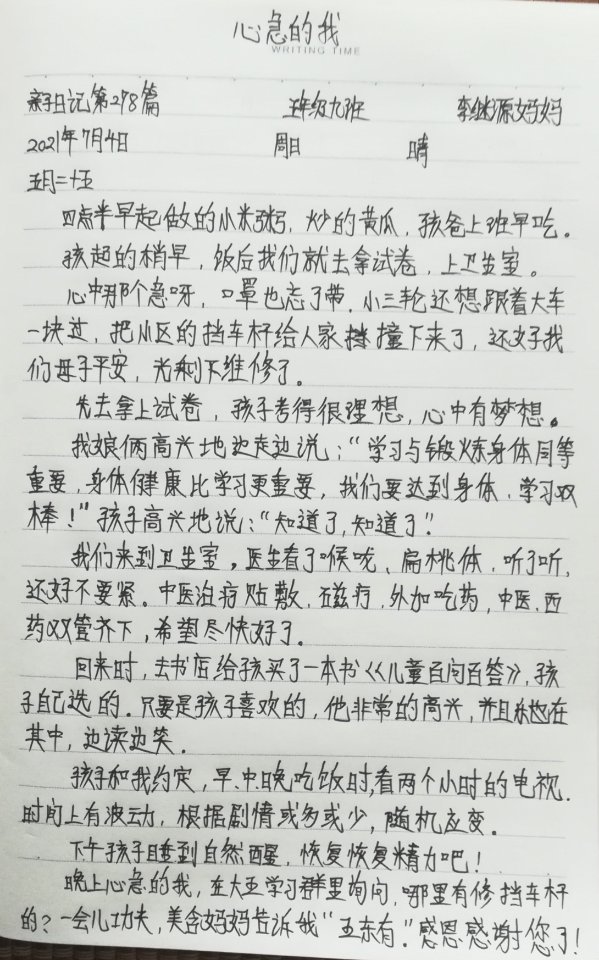 心急的我
WRITING TIME
亲子日记第278篇 班级九班 李继源妈妈
2021年7月4日 周日 晴
五月二十五
四点半早起做的小米粥,炒的黄瓜,孩爸上班早吃。
孩起的稍早,饭后我们就去拿试卷,上卫生室。
心中那个急呀,口罩也忘了带,小三轮还想跟着大车
一块过,把小区的挡车杆给人家撞下来了,还好我
们母子平安,光剩下维修了。
先去拿上试卷,孩子考得很理想,心中有梦想。
我娘俩高兴地边走边说:“学习与锻炼身体同等
重要,身体健康比学习更重要,我们要达到身体、学习双
棒!”孩子高兴地说:“知道了,知道了”.
我们来到卫生室,医生看了喉咙、扁桃体,听了听,
还好不要紧。中医治疗贴敷,磁疗,外加吃药,中医、西
药双管齐下,希望尽快好了。
回来时,去书店给孩买了一本书《儿童百问百答》,孩
子自己选的.只要是孩子喜欢的,他非常的高兴,并且乐在
其中,边读边笑。
孩子和我约定,早、中、晚吃饭时,看两个小时的电视.
时间上有波动,根据剧情或多或少,随机应变。
下午孩子睡到自然醒,恢复恢复精力吧!
晚上心急的我,在大亚学习群里询问,哪里有修挡车杆
的?一会儿功夫,美含妈妈告诉我“五东有.”感恩感谢您了!